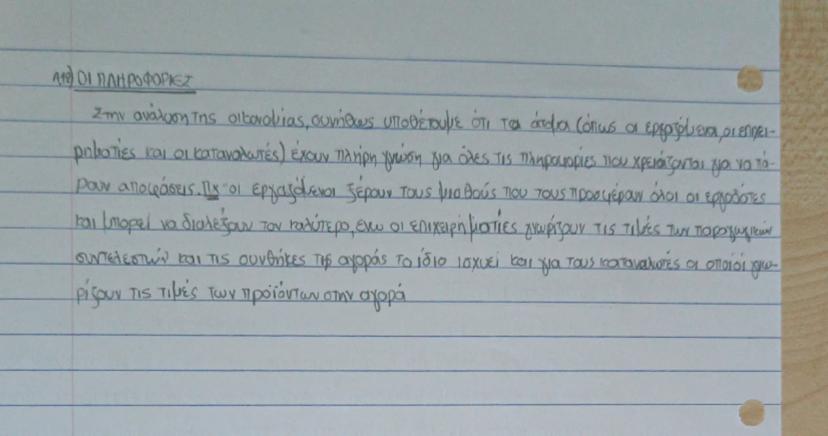 Α12) ΟΙ ΠΛΗΡΟΦΟΡΙΕΣ
Στην ανάλυση της οικονομίας, συνήθως υποθέτουμε ότι τα άτομα (όπως οι εργαζόμενοι, οι επιχει-
ρηματίες και οι καταναλωτές) έχουν πλήρη γνώση για όλες τις πληροφορίες που χρειάζονται για να πά-
ρουν αποφάσεις. Πχ οι εργαζόμενοι ξέρουν τους μισθούς που τους προσφέρουν όλοι οι εργοδότες
και μπορεί να διαλέξουν τον καλύτερο, ενω οι επιχειρηματίες γνωρίζουν τις τιμές των παραγωγικών
συντελεστών και τις συνθήκες της αγοράς το ίδιο ισχυεί και για τους καταναλωτές οι οποίοι γνω-
ρίζουν τις τιμές των προϊόντων στην αγορά